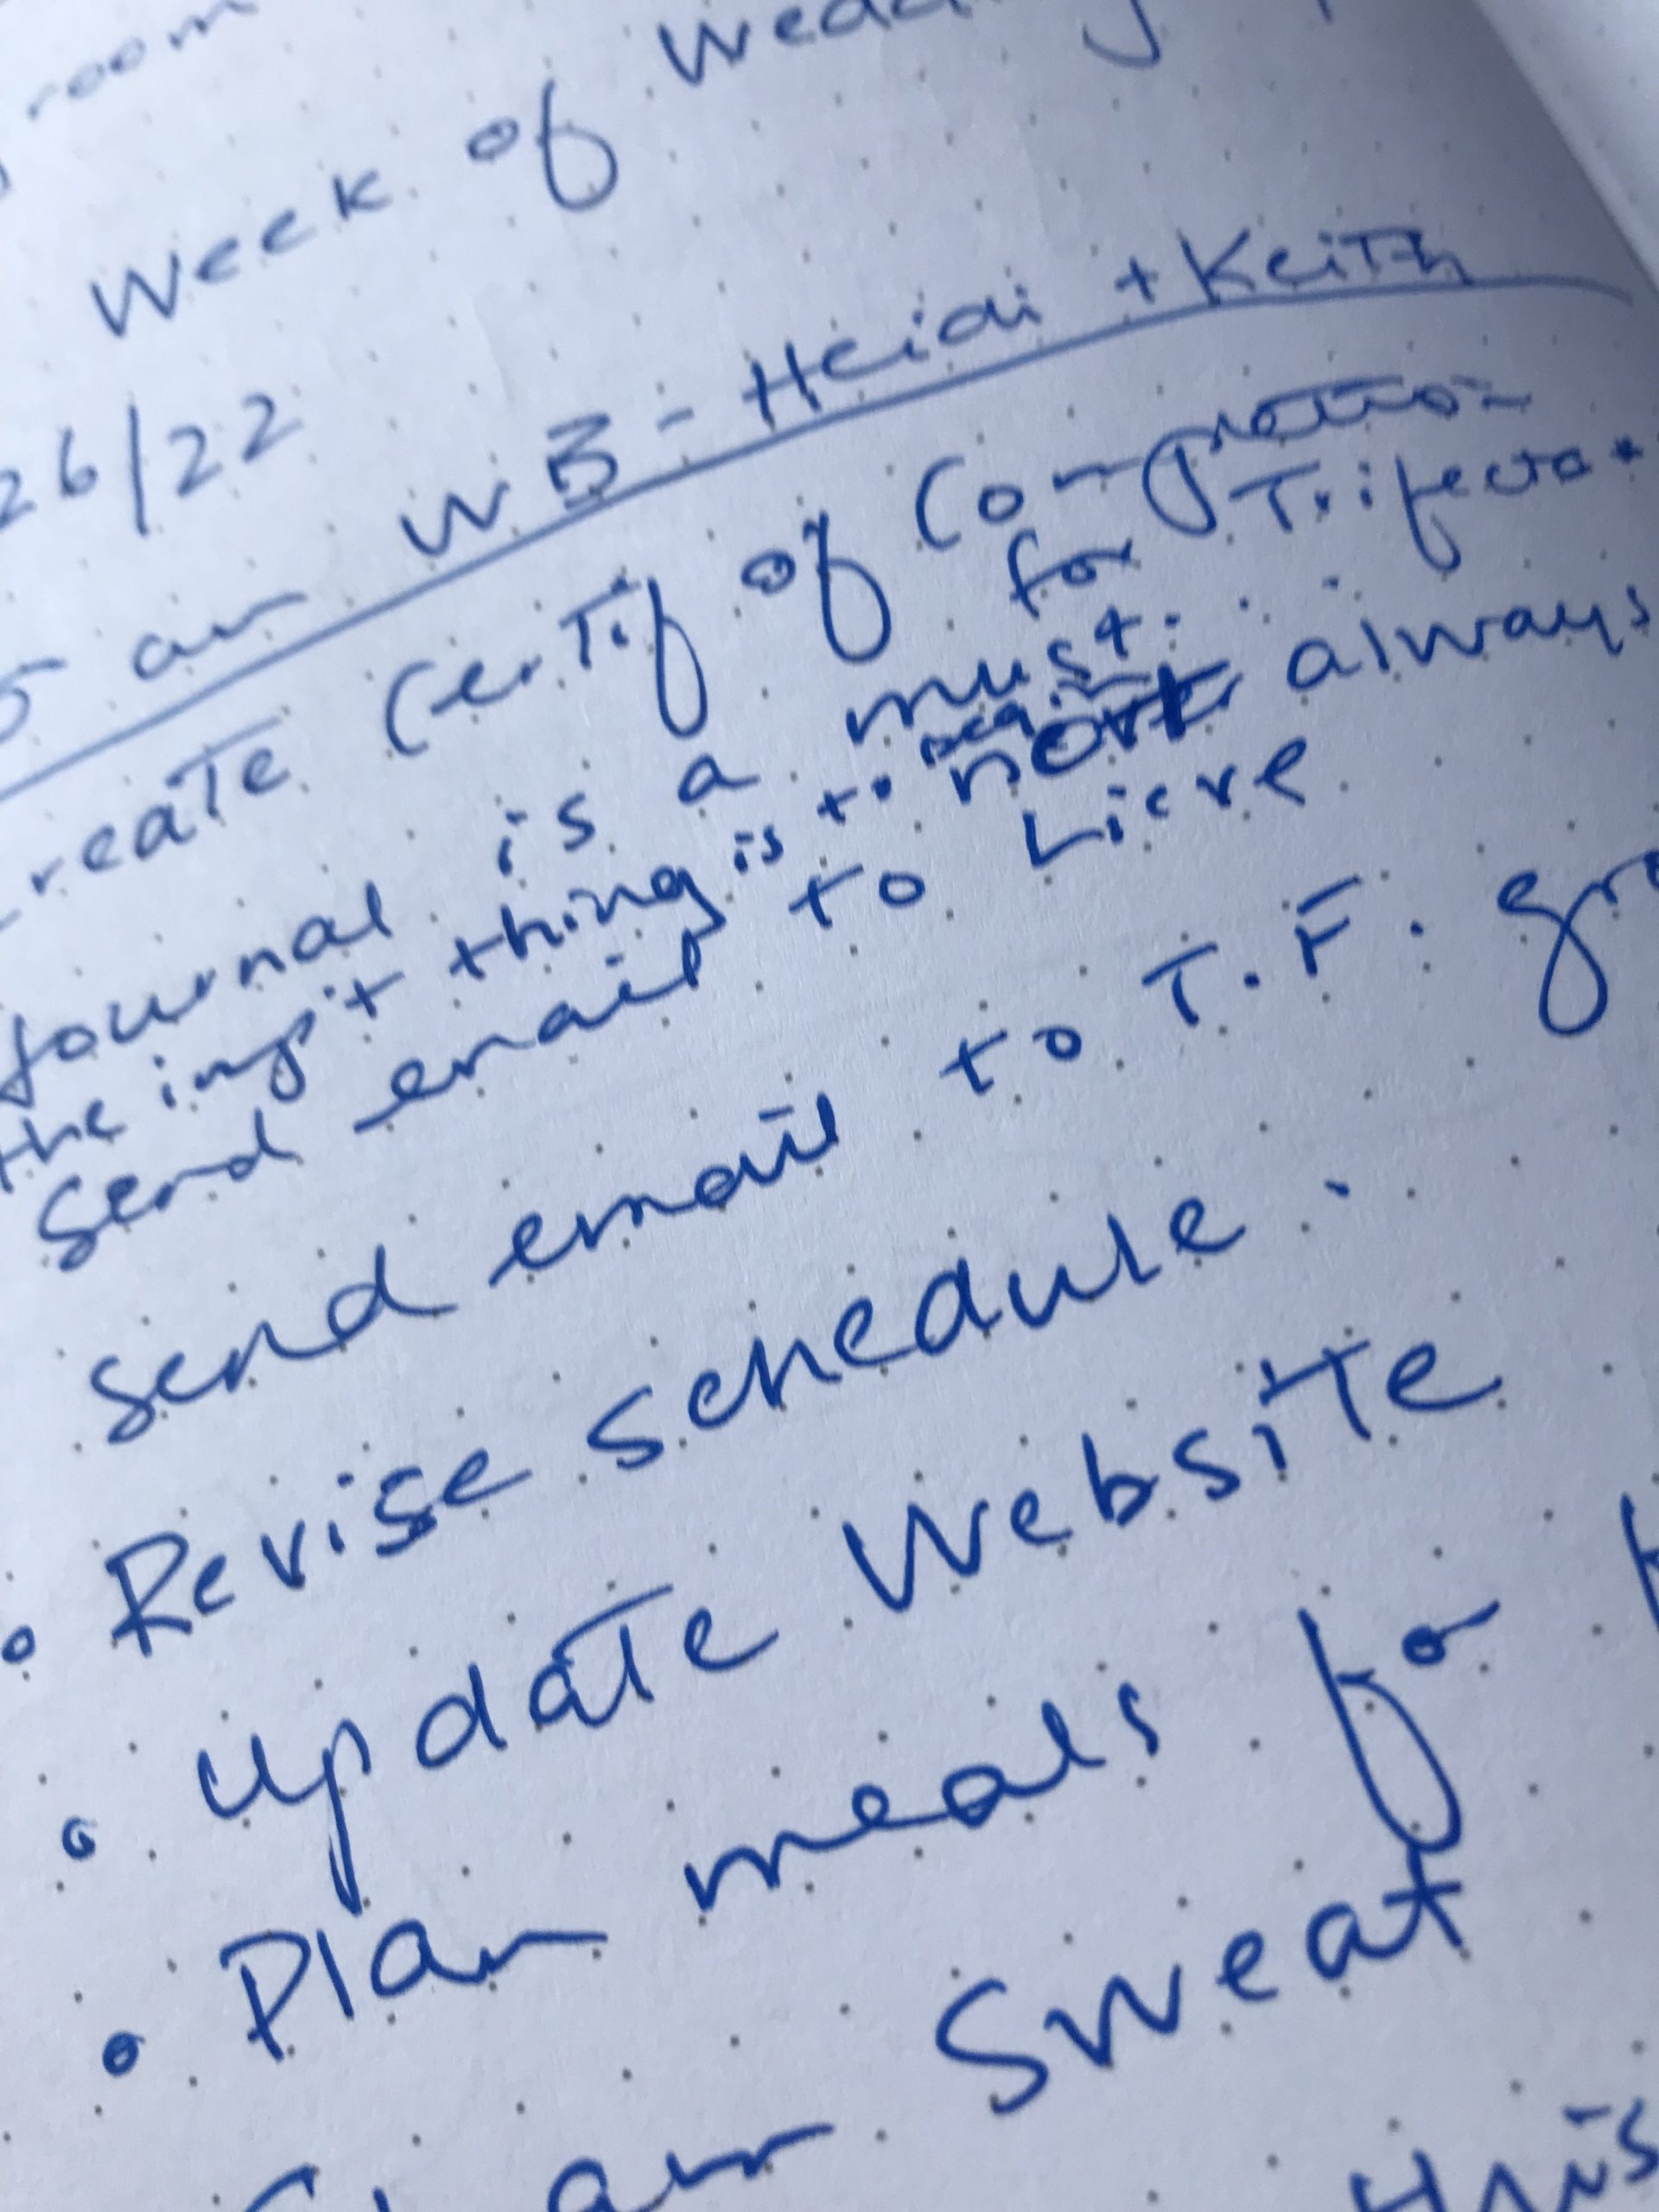 room
Week of Wedding
26/22
am WB - Heidi + Keith
reate Certif of Completion
for Trifecta +
Journal is a must.
the imp't thing is to not always
Send email to
Send email to T.F. gro
• Revise schedule
• update website
• Plan meals for
am Sweat